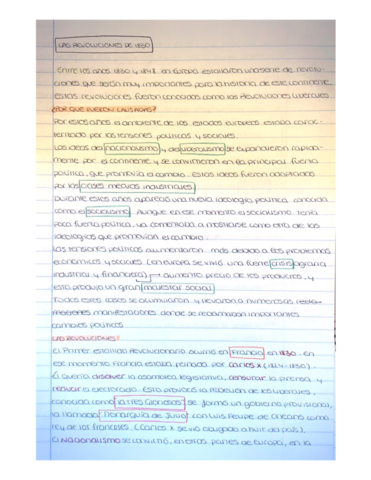 LAS REVOLUCIONES DE 1830
Entre los años 1830 y 1848 en Europa estallaron una serie de revolu-
ciones que serán muy importantes para la historia de este continente,
estas revoluciones fueron conocidas como las Revoluciones Liberales
¿POR QUÉ FUERON CAUSADAS?
Por estos años el ambiente de los estados europeos estaba carac-
terizado por las tensiones políticas y sociales.
Las ideas del nacionalismo y del liberalismo se expandieron rápida-
mente por el continente y se convirtieron en la principal fuerza
política, que promovía el cambio. Estas ideas fueron adoptadas
por las clases medias industriales
Durante estos años apareció una nueva ideología política conocida
como el socialismo. Aunque en ese momento el socialismo tenía
poca fuerza política, ya comenzaba a mostrarse como otra de las
ideologías que promovían el cambio.
Las tensiones políticas aumentaron más debido a los problemas
económicos y sociales (en europa se vivió una fuerte crisis agraria
industria y financiera) → aumento precio de los productos, y
esto produjo un gran malestar social
Todas estas cosas se acumularon y llevaron a numerosas
manifestaciones donde se reclamaban importantes
cambios políticos
LAS REVOLUCIONES?
El Primer estallido Revolucionario ocurrió en Francia en 1830. En
ese momento Francia estaba reinada por Carlos X (1824-1830).
Él quería disolver la asamblea legislativa, censurar la prensa y
el electorado. Esto provocó la reacción de los liberales,
conocida como las Tres Gloriosas se formó un gobierno provisional,
la llamada Monarquía de Julio con Luis Felipe de Orleans como
rey de los franceses (Carlos X se vio obligado a huir del país).
El Nacionalismo se convirtió, en otras partes de Europa, en la